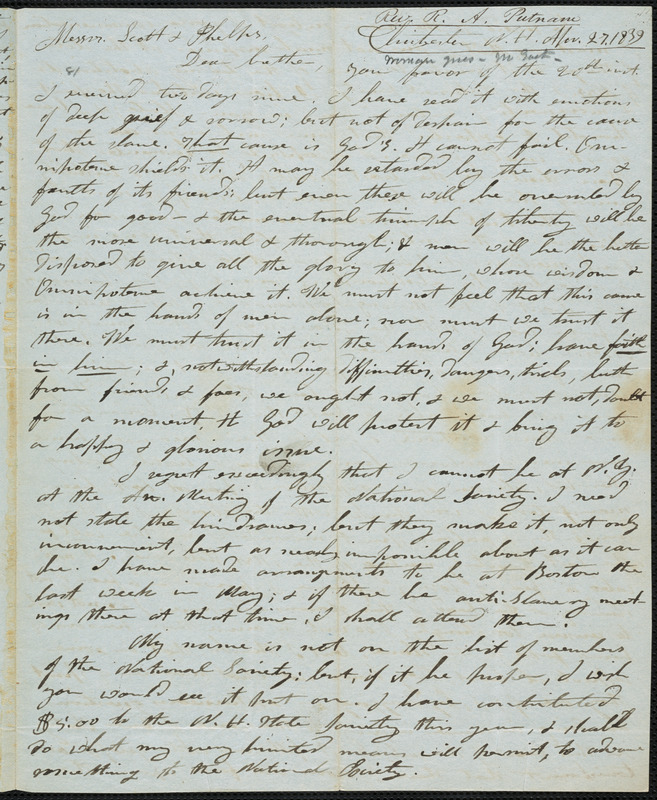 Rev. R. A. Putnam
Messrs. Scott & Phelps, Chichester N.H. Apr. 27, 1839
Dear brethren,
Your favor of the 20th inst.
I received two days since. I have read it with emotions
of deep grief & sorrow; but not of despair for the cause
of the slave. That cause is God's. It cannot fail. Om-
nipotence shields it. It may be retarded by the errors &
faults of its friends; but even these will be overruled by
God for good — & the eventual triumph of liberty will be
the more universal & thorough; & men will be the better
disposed to give all the glory to him, whose wisdom &
Omnipotence achieve it. We must not feel that this cause
is in the hands of men alone; nor must we trust it
there. We must trust it in the hands of God; have faith
in him; &, notwithstanding difficulties, dangers, trials, both
from friends & foes, we ought not, & we must not, doubt
for a moment, that God will protect it & bring it to
a happy & glorious issue.
I regret exceedingly that I cannot be at N.Y.
at the Ann. Meeting of the National Society. I need
not state the hindrances; but they make it, not only
inconvenient, but as nearly impossible about as it can
be. I have made arrangements to be at Boston the
last week in May; & if there be anti-Slavery meet-
ings there at that time, I shall attend them.
My name is not on the list of members
of the National Society; but, if it be proper, I wish
you would see it put on. I have contributed
$5.00 to the N. H. State Society this year, & shall
do what my very limited means will permit, to advance
something to the National Society.